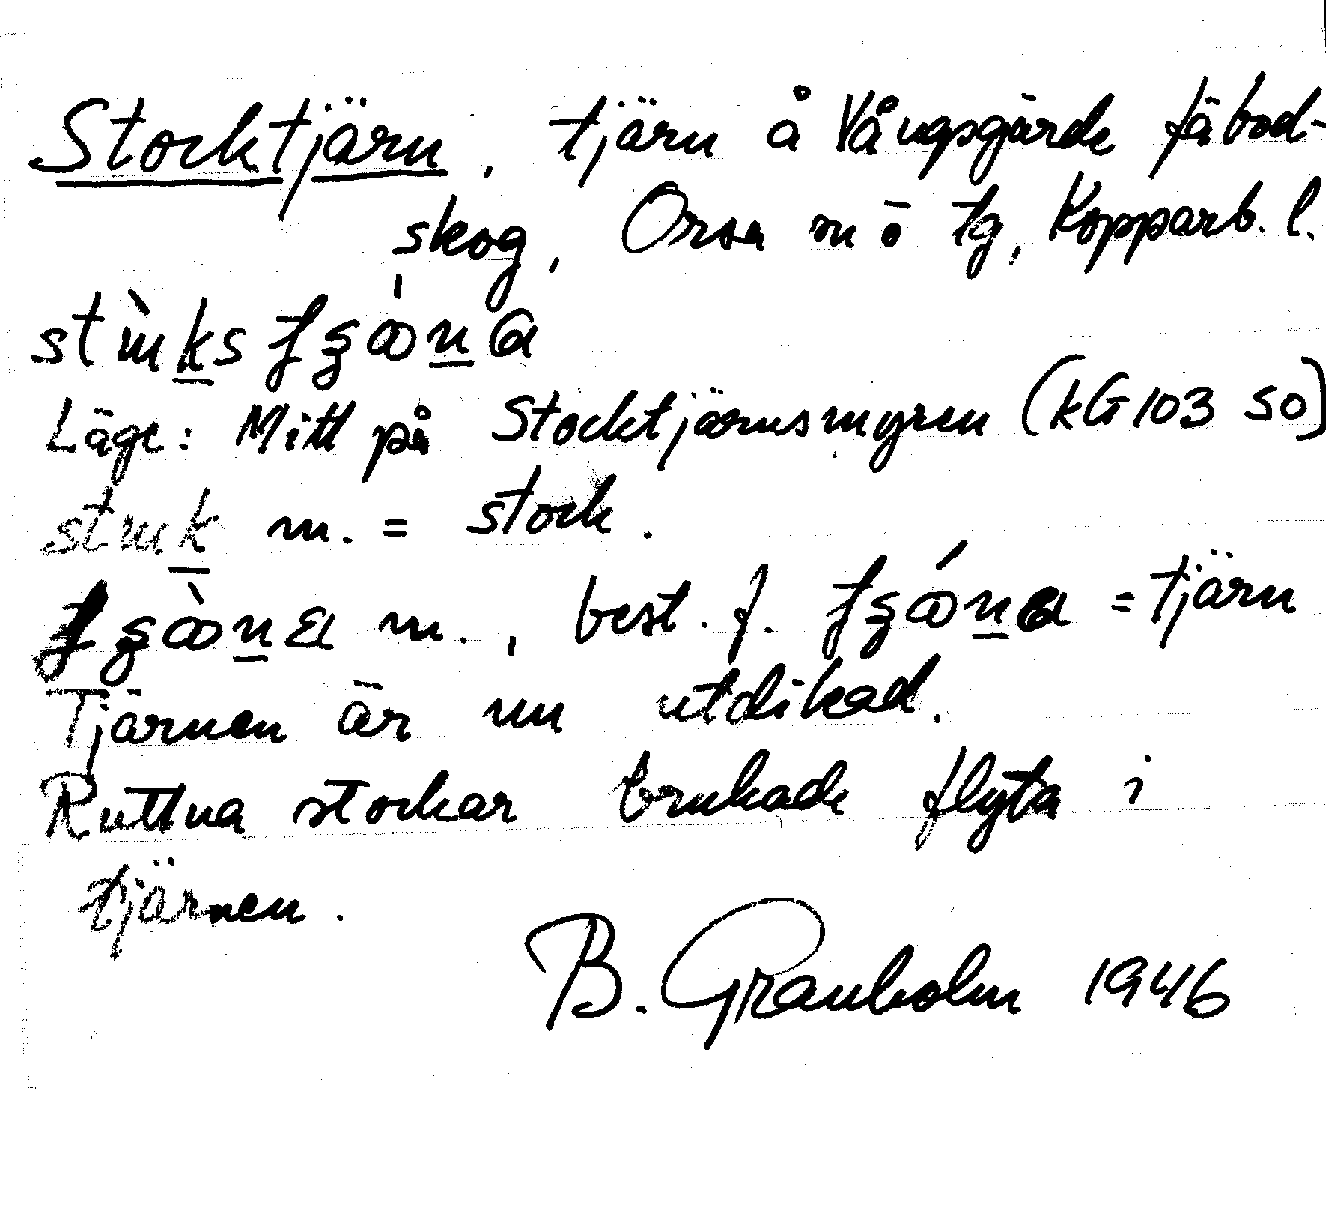 Stocktjärn, tjärn å Vångsgärde fäbod-
skog, Orsa sn o tg, Kopparb. l.
Läge: Mitt på Stocktjärnsmyren (kG 103 SO)
m. = stock.
m., best. f. = tjärn
Tjärnen är nu utdikad.
Ruttna stockar brukade flyta i
tjärnen.
B. Granholm 1946